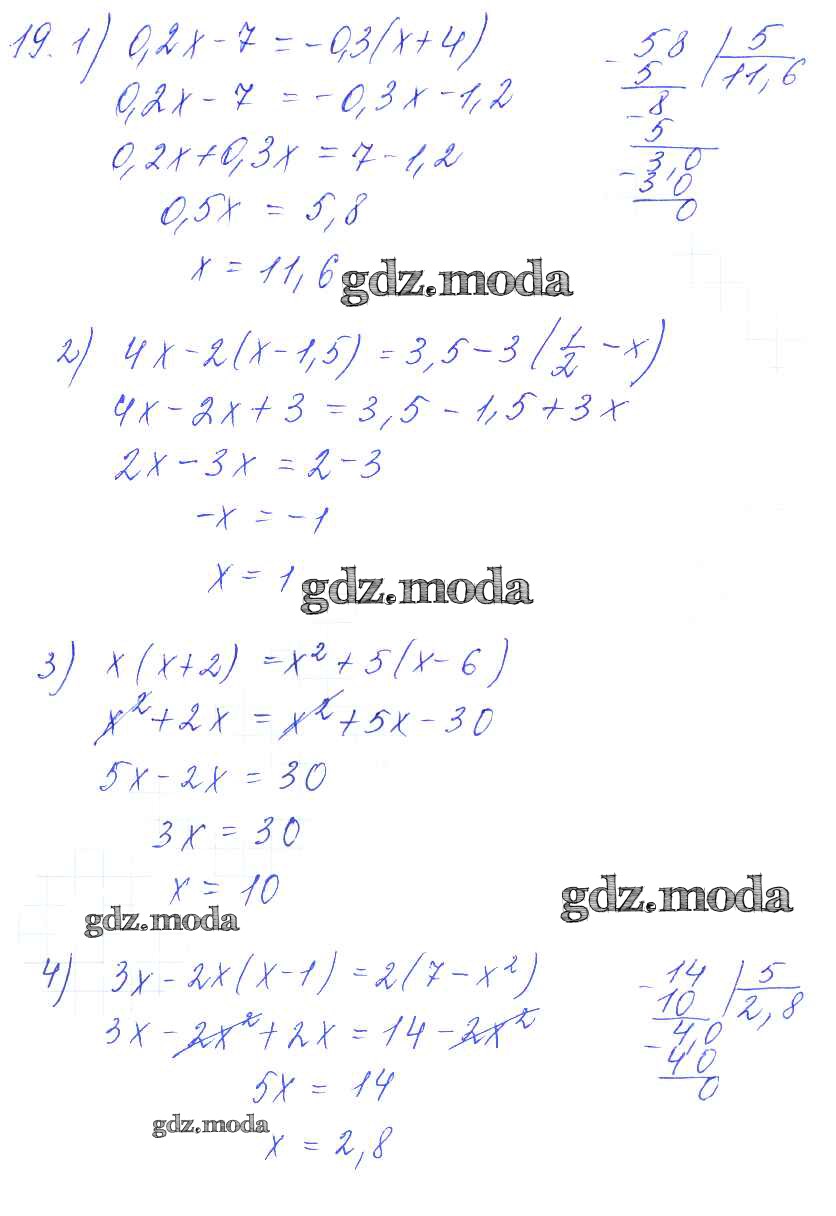 19. 1) 0,2x - 7 = -0,3(x+4)
0,2x - 7 = -0,3x - 1,2
0,2x + 0,3x = 7 - 1,2
0,5x = 5,8
x = 11,6
- 58 | 5
5 | 11,6
- 8
5
- 3,0
3 0
0
gdz.moda
2) 4x - 2(x - 1,5) = 3,5 - 3(1/2 - x)
4x - 2x + 3 = 3,5 - 1,5 + 3x
2x - 3x = 2 - 3
-x = -1
x = 1
gdz.moda
3) x(x+2) = x² + 5(x - 6)
x² + 2x = x² + 5x - 30
5x - 2x = 30
3x = 30
x = 10
gdz.moda
gdz.moda
4) 3x - 2x(x - 1) = 2(7 - x²)
3x - 2x² + 2x = 14 - 2x²
5x = 14
x = 2,8
gdz.moda
- 14 | 5
10 | 2,8
- 4,0
4 0
0